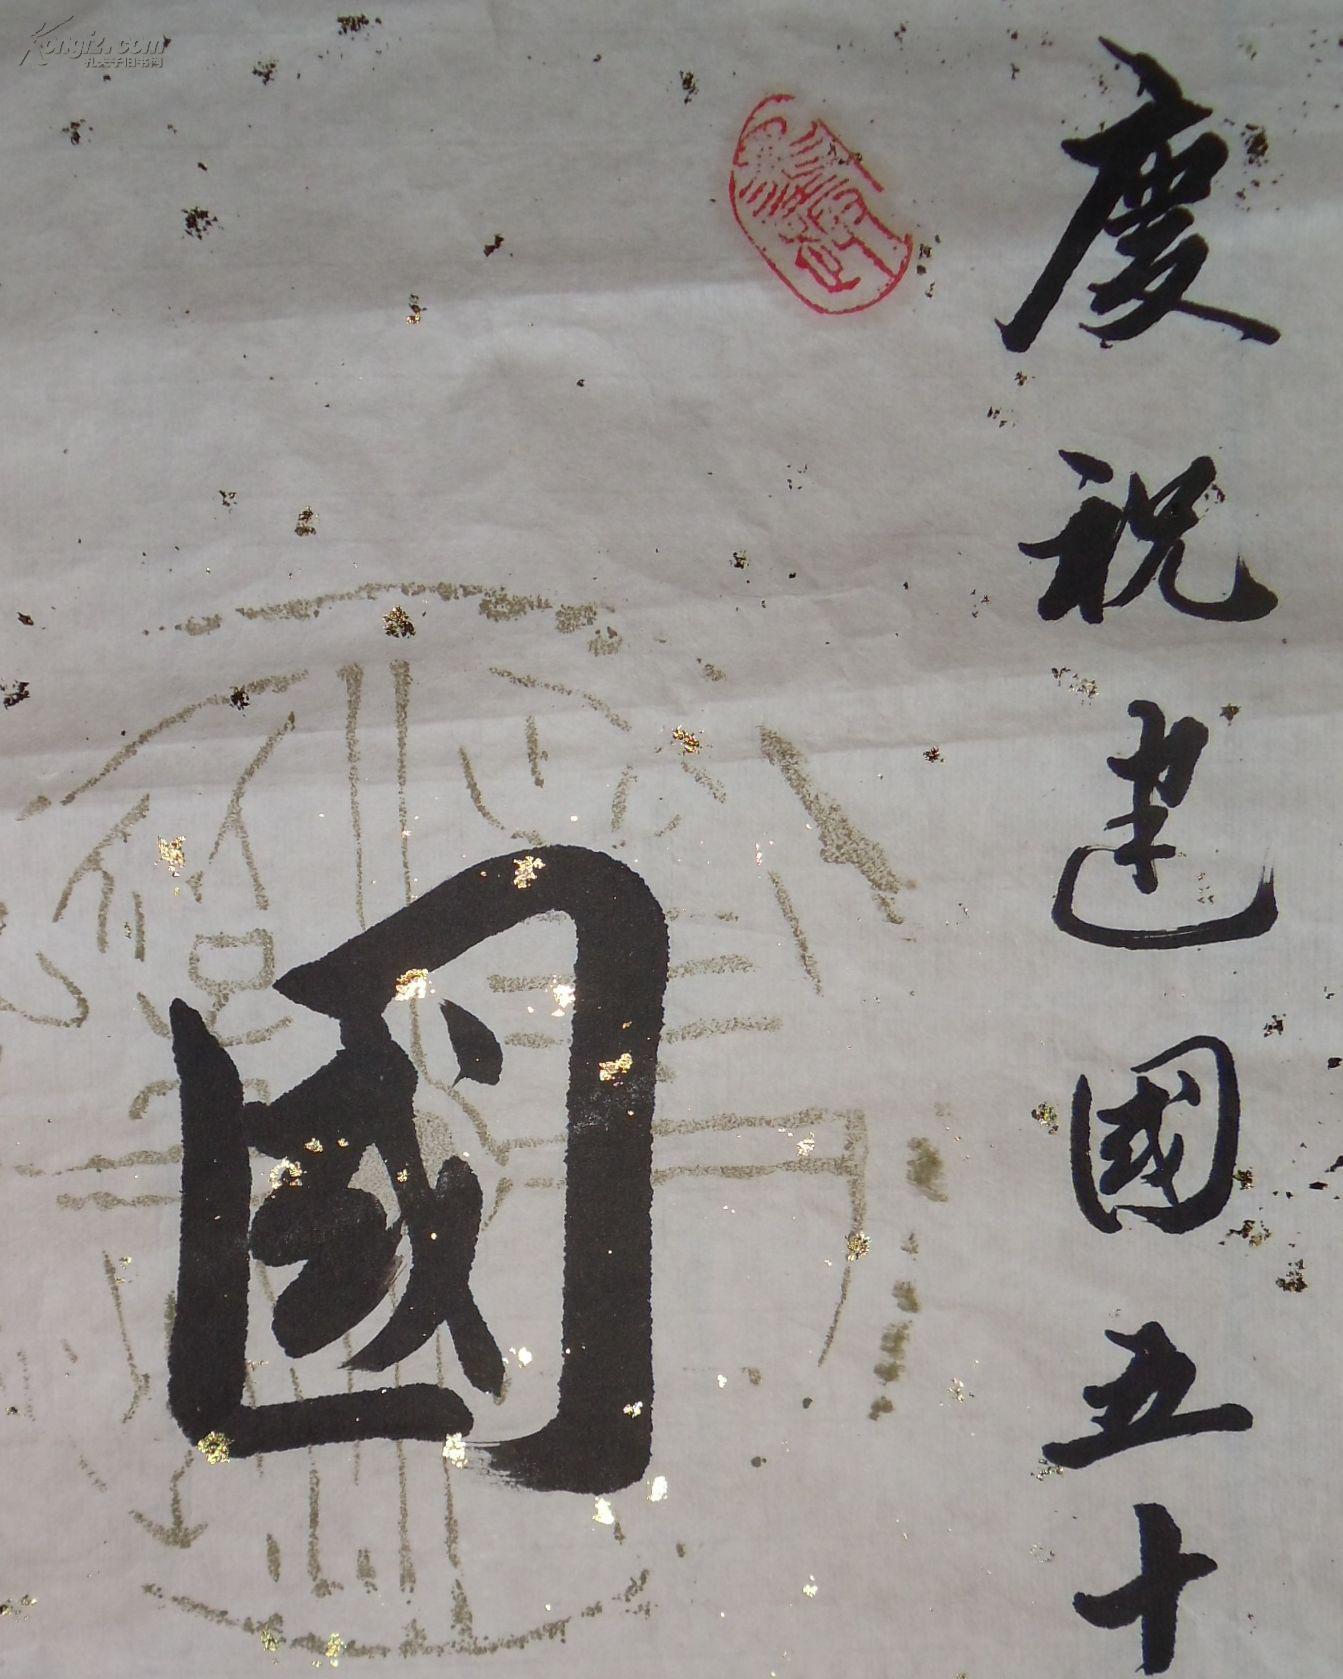 慶祝建國五十
國
Kongfz.com
孔夫子旧书网